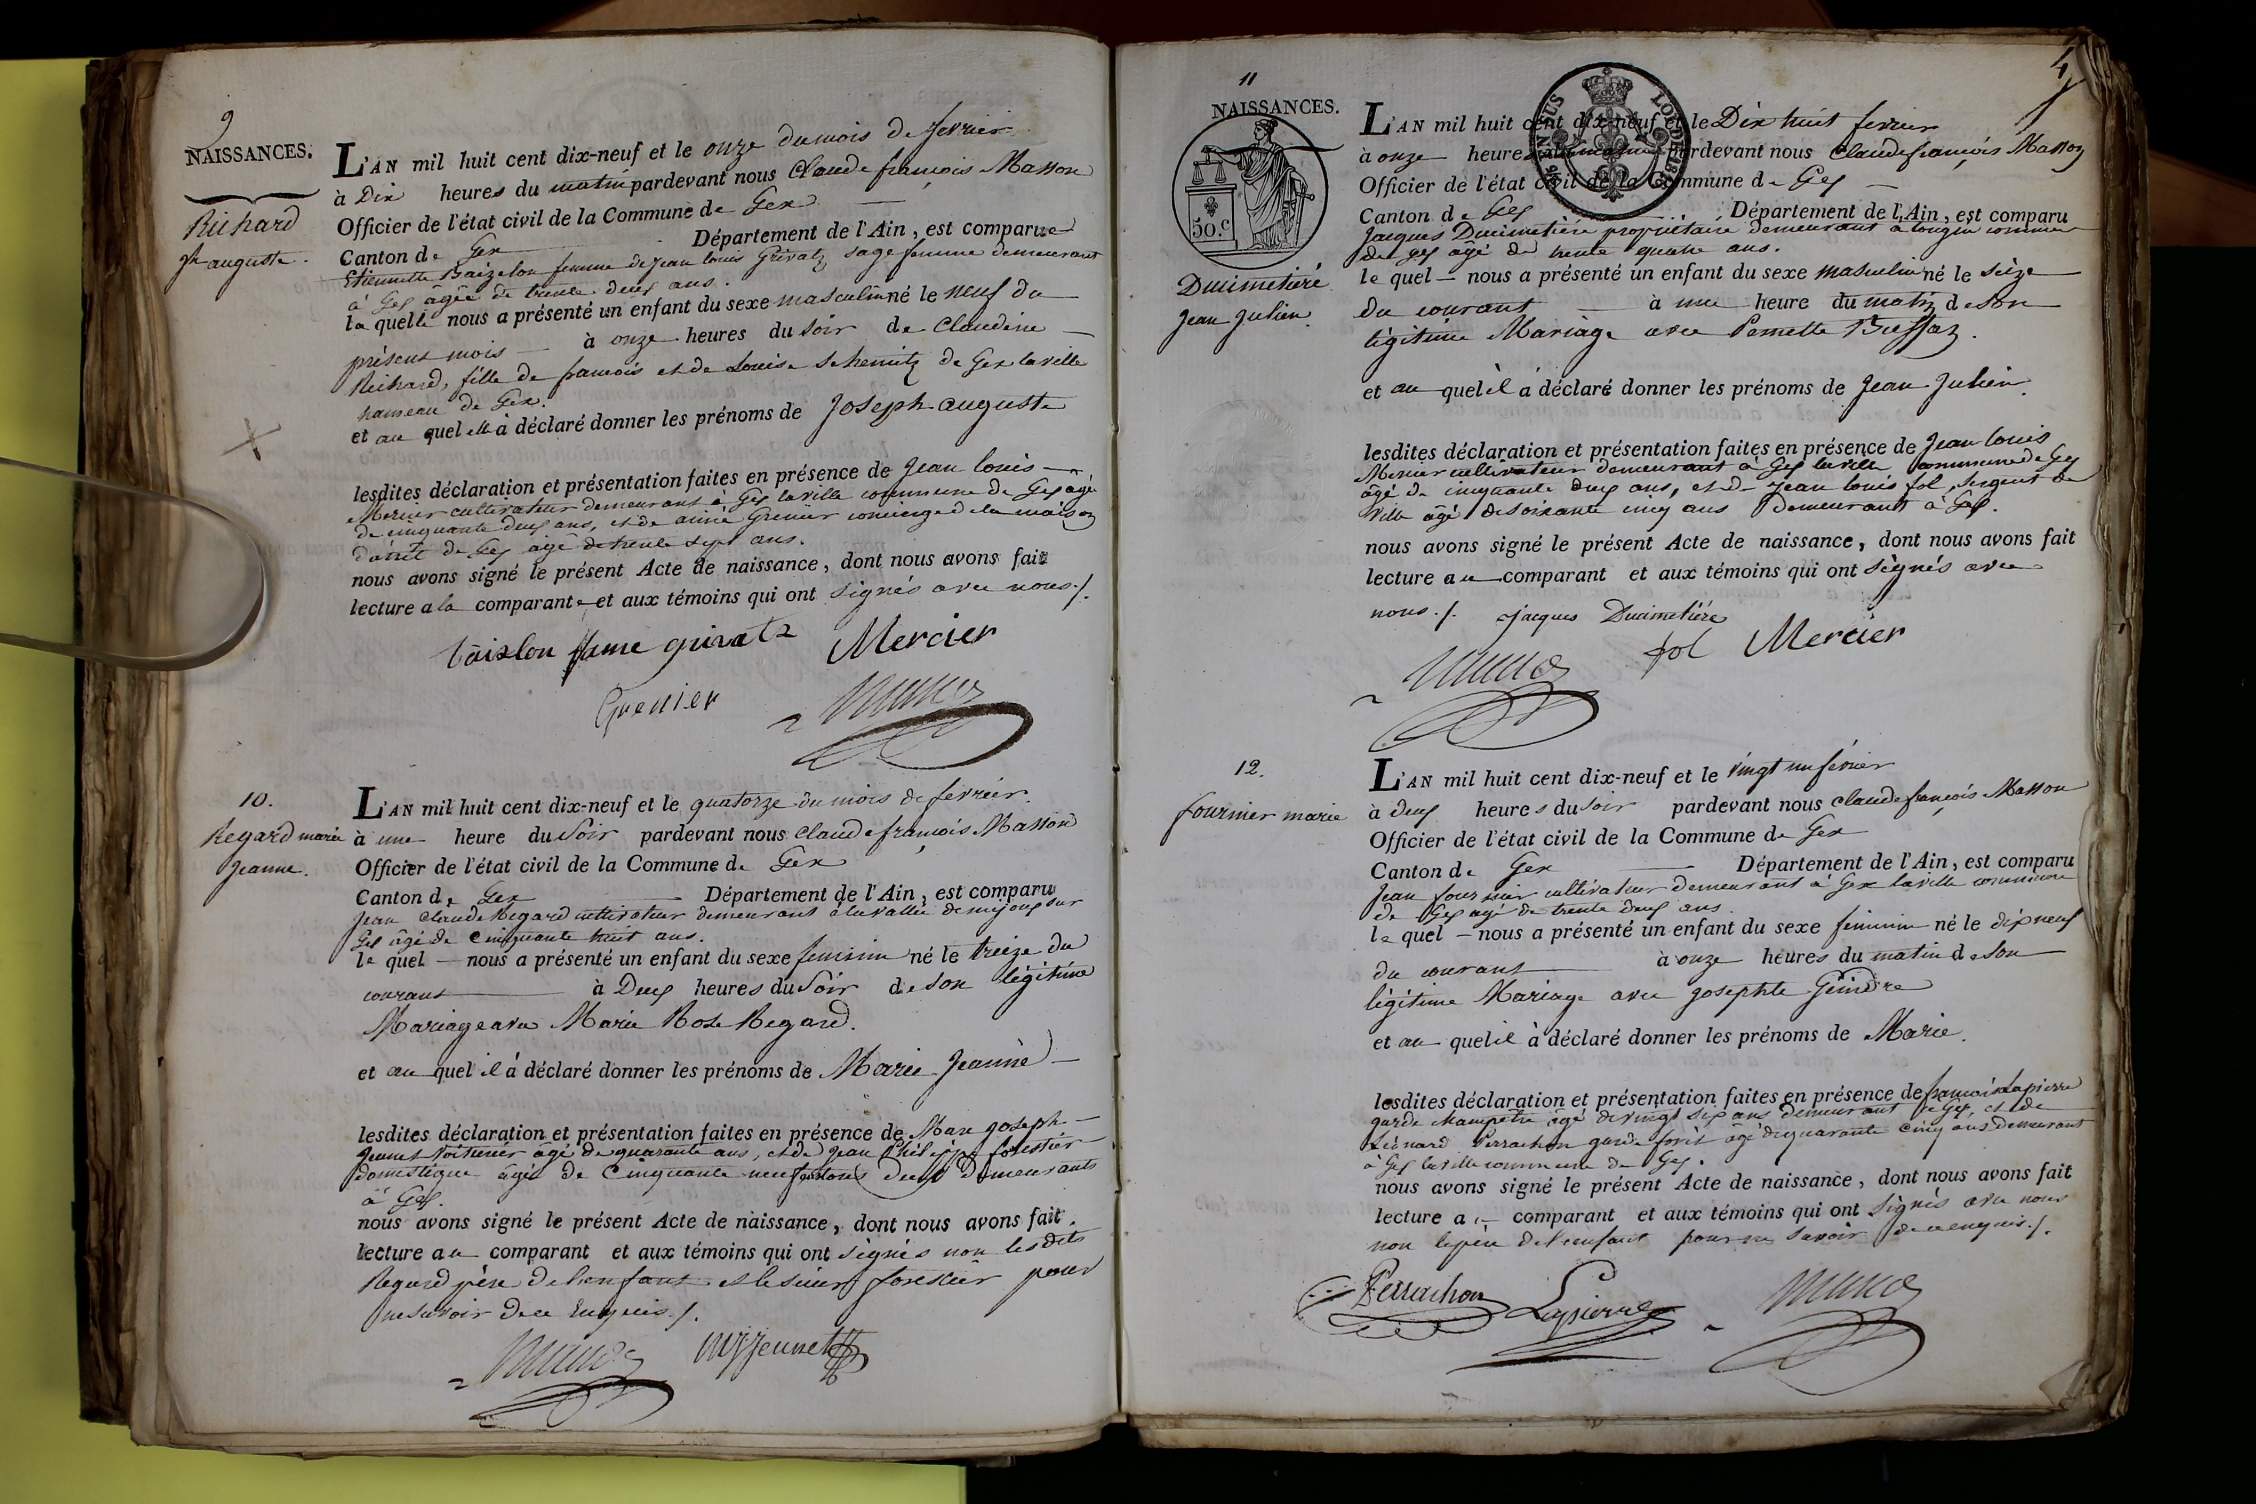 9
NAISSANCES.
Richard
jh auguste.
L'AN mil huit cent dix-neuf et le onze du mois de fevrier
à Dix heures du matin pardevant nous Claude françois Masson
Officier de l'état civil de la Commune de Gex
Canton de Gex Département de l'Ain, est comparue
Etiennette Baizelon femme de Jean louis Grivatz sage femme demeurant
à Gex âgée de trente deux ans.
la quelle nous a présenté un enfant du sexe masculin né le neuf du
présent mois à onze heures du soir de Claudine
Richard, fille de françois et de Louise Schemitz de Gex la ville
hameau de Gex.
et au quel elle à déclaré donner les prénoms de Joseph auguste
lesdites déclaration et présentation faites en présence de Jean louis
Mercier cultivateur demeurant à Gex la ville commune de Gex agé
de cinquante deux ans, et de aimé Grenier concierge de la maison
d'arrêt de Gex âgé de trente sept ans.
nous avons signé le présent Acte de naissance, dont nous avons fait
lecture a la comparante et aux témoins qui ont signés avec nous ./.
baizlon fame grivatz Mercier
Grenier
10.
Regard marie
Jeanne.
L'AN mil huit cent dix-neuf et le quatorze du mois de fevrier.
à une heure du Soir pardevant nous Claude françois Masson
Officier de l'état civil de la Commune de Gex
Canton de Gex Département de l'Ain, est comparu
Jean Claude Regard cultivateur demeurant à la vallée de mijoux sur
Gex âgé de Cinquante huit ans.
le quel nous a présenté un enfant du sexe feminin né le treize du
courant à Deux heures du Soir de son légitime
Mariage avec Marie Rose Regard.
et au quel il à déclaré donner les prénoms de Marie Jeanne
lesdites déclaration et présentation faites en présence de Marc joseph
Jeunet Voiturier âgé de quarante ans, et de Jean Philippe forestier
domestique âgé de Cinquante neuf ans tous deux Demeurants
à Gex.
nous avons signé le présent Acte de naissance, dont nous avons fait
lecture au comparant et aux témoins qui ont signés non lesdits
Regard père de l'enfant et le sieur forestier pour
ne savoir de ce Enquis ./.
MJ Jeunet
4
11
NAISSANCES.
50.c
Ducimetière
Jean Julien.
L'AN mil huit cent dix-neuf et le Dix huit fevrier
à onze heures du matin pardevant nous Claude françois Masson
Officier de l'état civil de la Commune de Gex
Canton de Gex Département de l'Ain, est comparu
Jacques Ducimetière propriétaire demeurant à tougin commune
de gex âgé de trente quatre ans.
le quel nous a présenté un enfant du sexe masculin né le seize
du courant à une heure du matin de son
légitime Mariage avec Pernette Bussaz.
et au quel il à déclaré donner les prénoms de Jean Julien.
lesdites déclaration et présentation faites en présence de Jean louis
Mercier cultivateur demeurant à Gex la ville commune de Gex
âgé de cinquante deux ans, et de Jean louis fol, Sergent de
Ville âgé de soixante cinq ans Demeurant à Gex.
nous avons signé le présent Acte de naissance, dont nous avons fait
lecture au comparant et aux témoins qui ont signés avec
nous ./. Jacques Ducimetière
fol Mercier
12.
fournier marie
L'AN mil huit cent dix-neuf et le vingt un février
à deux heures du soir pardevant nous claude françois Masson
Officier de l'état civil de la Commune de Gex
Canton de Gex Département de l'Ain, est comparu
Jean fournier cultivateur demeurant à Gex la ville commune
de Gex agé de trente deux ans
le quel nous a présenté un enfant du sexe feminin né le dix neuf
du courant à onze heures du matin de son
légitime Mariage avec Josephte Geindre
et au quel il à déclaré donner les prénoms de Marie.
lesdites déclaration et présentation faites en présence de françois Lapierre
garde champêtre âgé de vingt six ans demeurant à Gex, et de
Leonard Perrachon garde forêt âgé de quarante cinq ans demeurant
à Gex la ville commune de Gex.
nous avons signé le présent Acte de naissance, dont nous avons fait
lecture au comparant et aux témoins qui ont signés avec nous
non le père de l'enfant pour ne savoir de ce enquis ./.
Perrachon Lapierre